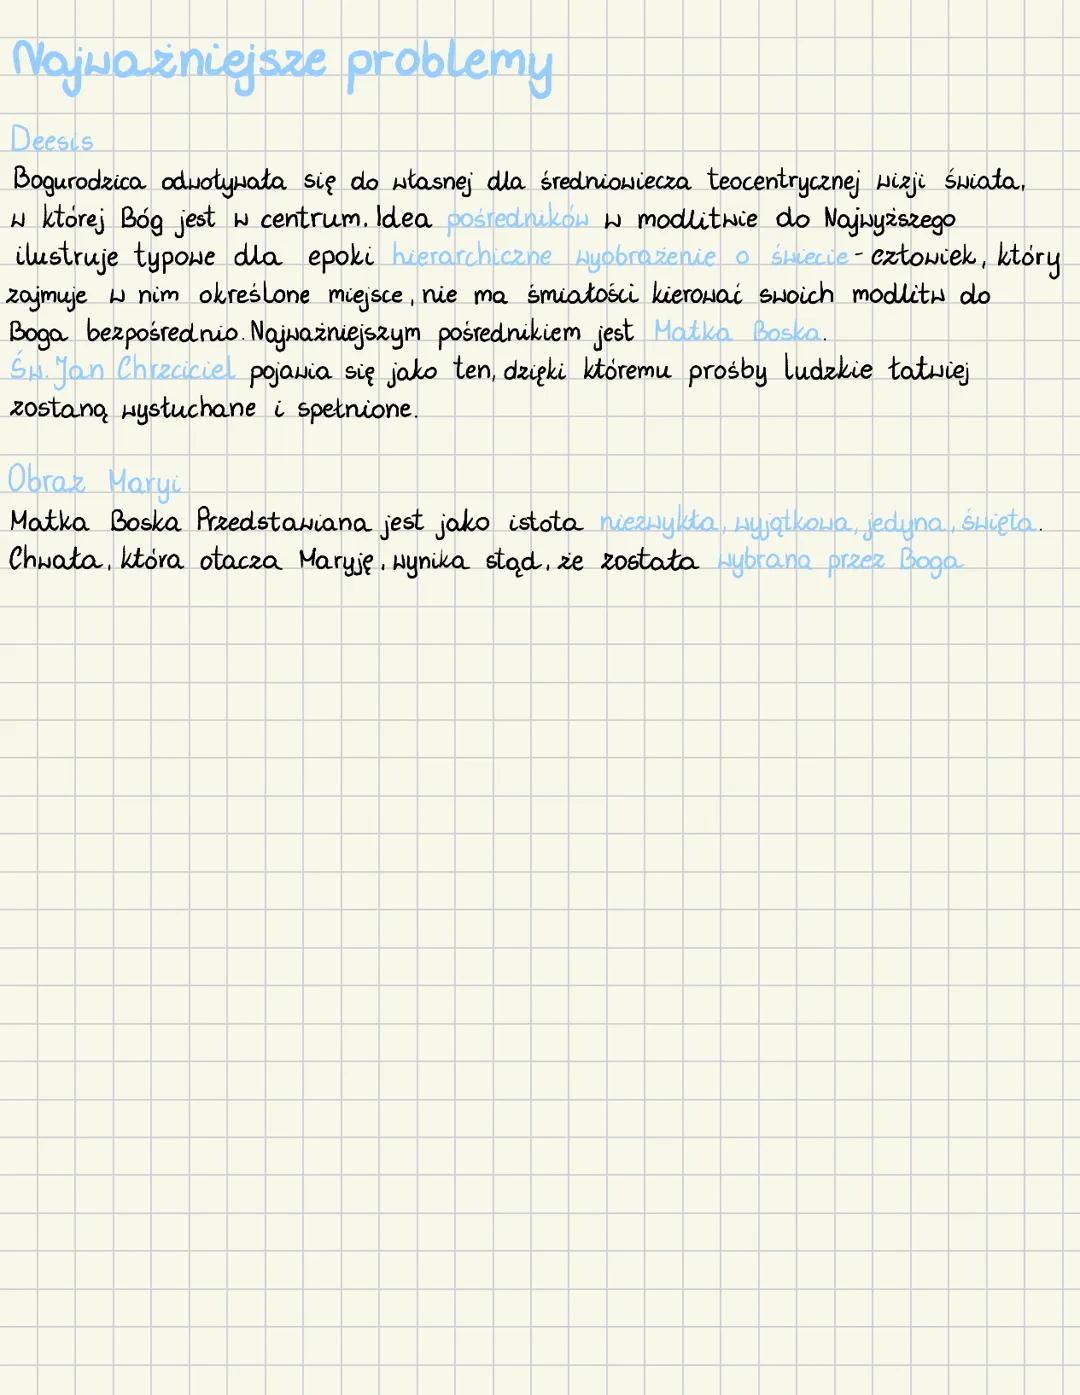 Najważniejsze problemy
Deesis
Bogurodzica odwoływała się do własnej dla średniowiecza teocentrycznej wizji świata,
w której Bóg jest w centrum. Idea pośredników w modlitwie do Najwyższego
ilustruje typowe dla epoki hierarchiczne wyobrażenie o świecie - człowiek, który
zajmuje w nim określone miejsce, nie ma śmiałości kierować swoich modlitw do
Boga bezpośrednio. Najważniejszym pośrednikiem jest Matka Boska.
Św. Jan Chrzciciel pojawia się jako ten, dzięki któremu prośby ludzkie łatwiej
zostaną wysłuchane i spełnione.
Obraz Maryi
Matka Boska Przedstawiana jest jako istota niezwykła, wyjątkowa, jedyna, święta.
Chwała, która otacza Maryję, wynika stąd, że została wybrana przez Boga